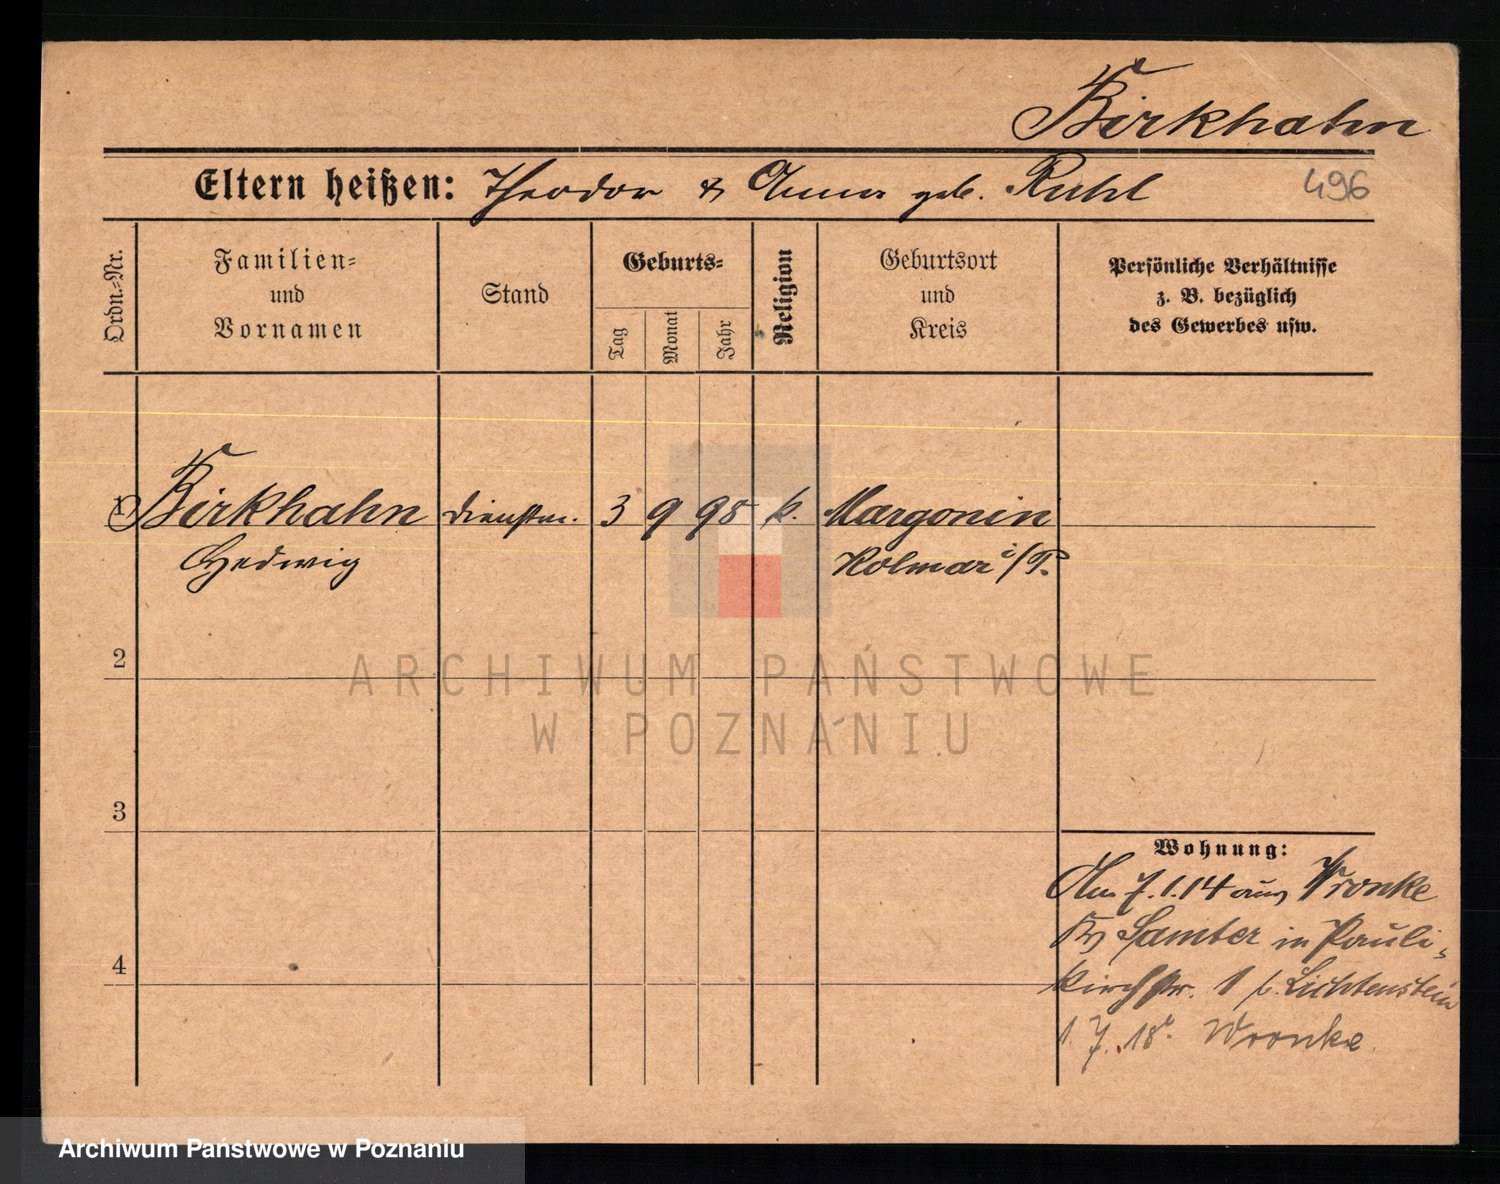 Birkhahn
Eltern heißen: Theodor & Anna geb. Ruhl
496
Ordn.-Nr.
Familien- und Vornamen
Stand
Geburts-
Tag
Monat
Jahr
Religion
Geburtsort und Kreis
Persönliche Verhältnisse z. B. bezüglich des Gewerbes usw.
1 Birkhahn dienstm. 3 9 98 k. Margonin
Hedwig Kolmar i/P.
2
ARCHIWUM PAŃSTWOWE
W POZNANIU
3
Wohnung:
Am 7.1.14 aus Wronke
Kr Samter in Pauli-
kirchstr. 1 b. Lichtenstein
4
1.7.18. Wronke.
Archiwum Państwowe w Poznaniu